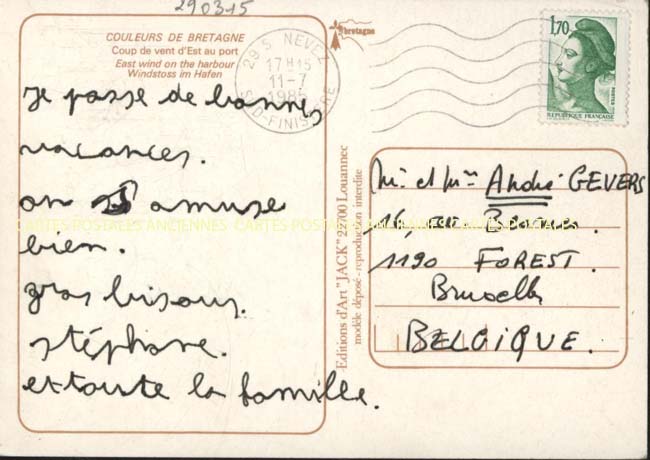 290315
COULEURS DE BRETAGNE
Coup de vent d'Est au port
East wind on the harbour
Windstoss im Hafen
je passe de bonnes
vacances.
on s'amuse
bien.
gros bisous.
stéphane.
et toute la famille.
CARTES POSTALES ANCIENNES CARTES POSTALES ANCIENNES CARTES POSTALES
Editions d'Art "JACK" 22700 Louannec
modèle déposé - reproduction interdite
bretagne
29 S NEVEZ
17 H 15
11-7
1985
SUD-FINISTERE
1,70
POSTES
REPUBLIQUE FRANÇAISE
Mr et Mme André GEVERS
16, rue
1190 FOREST.
Bruxelles
BELGIQUE.